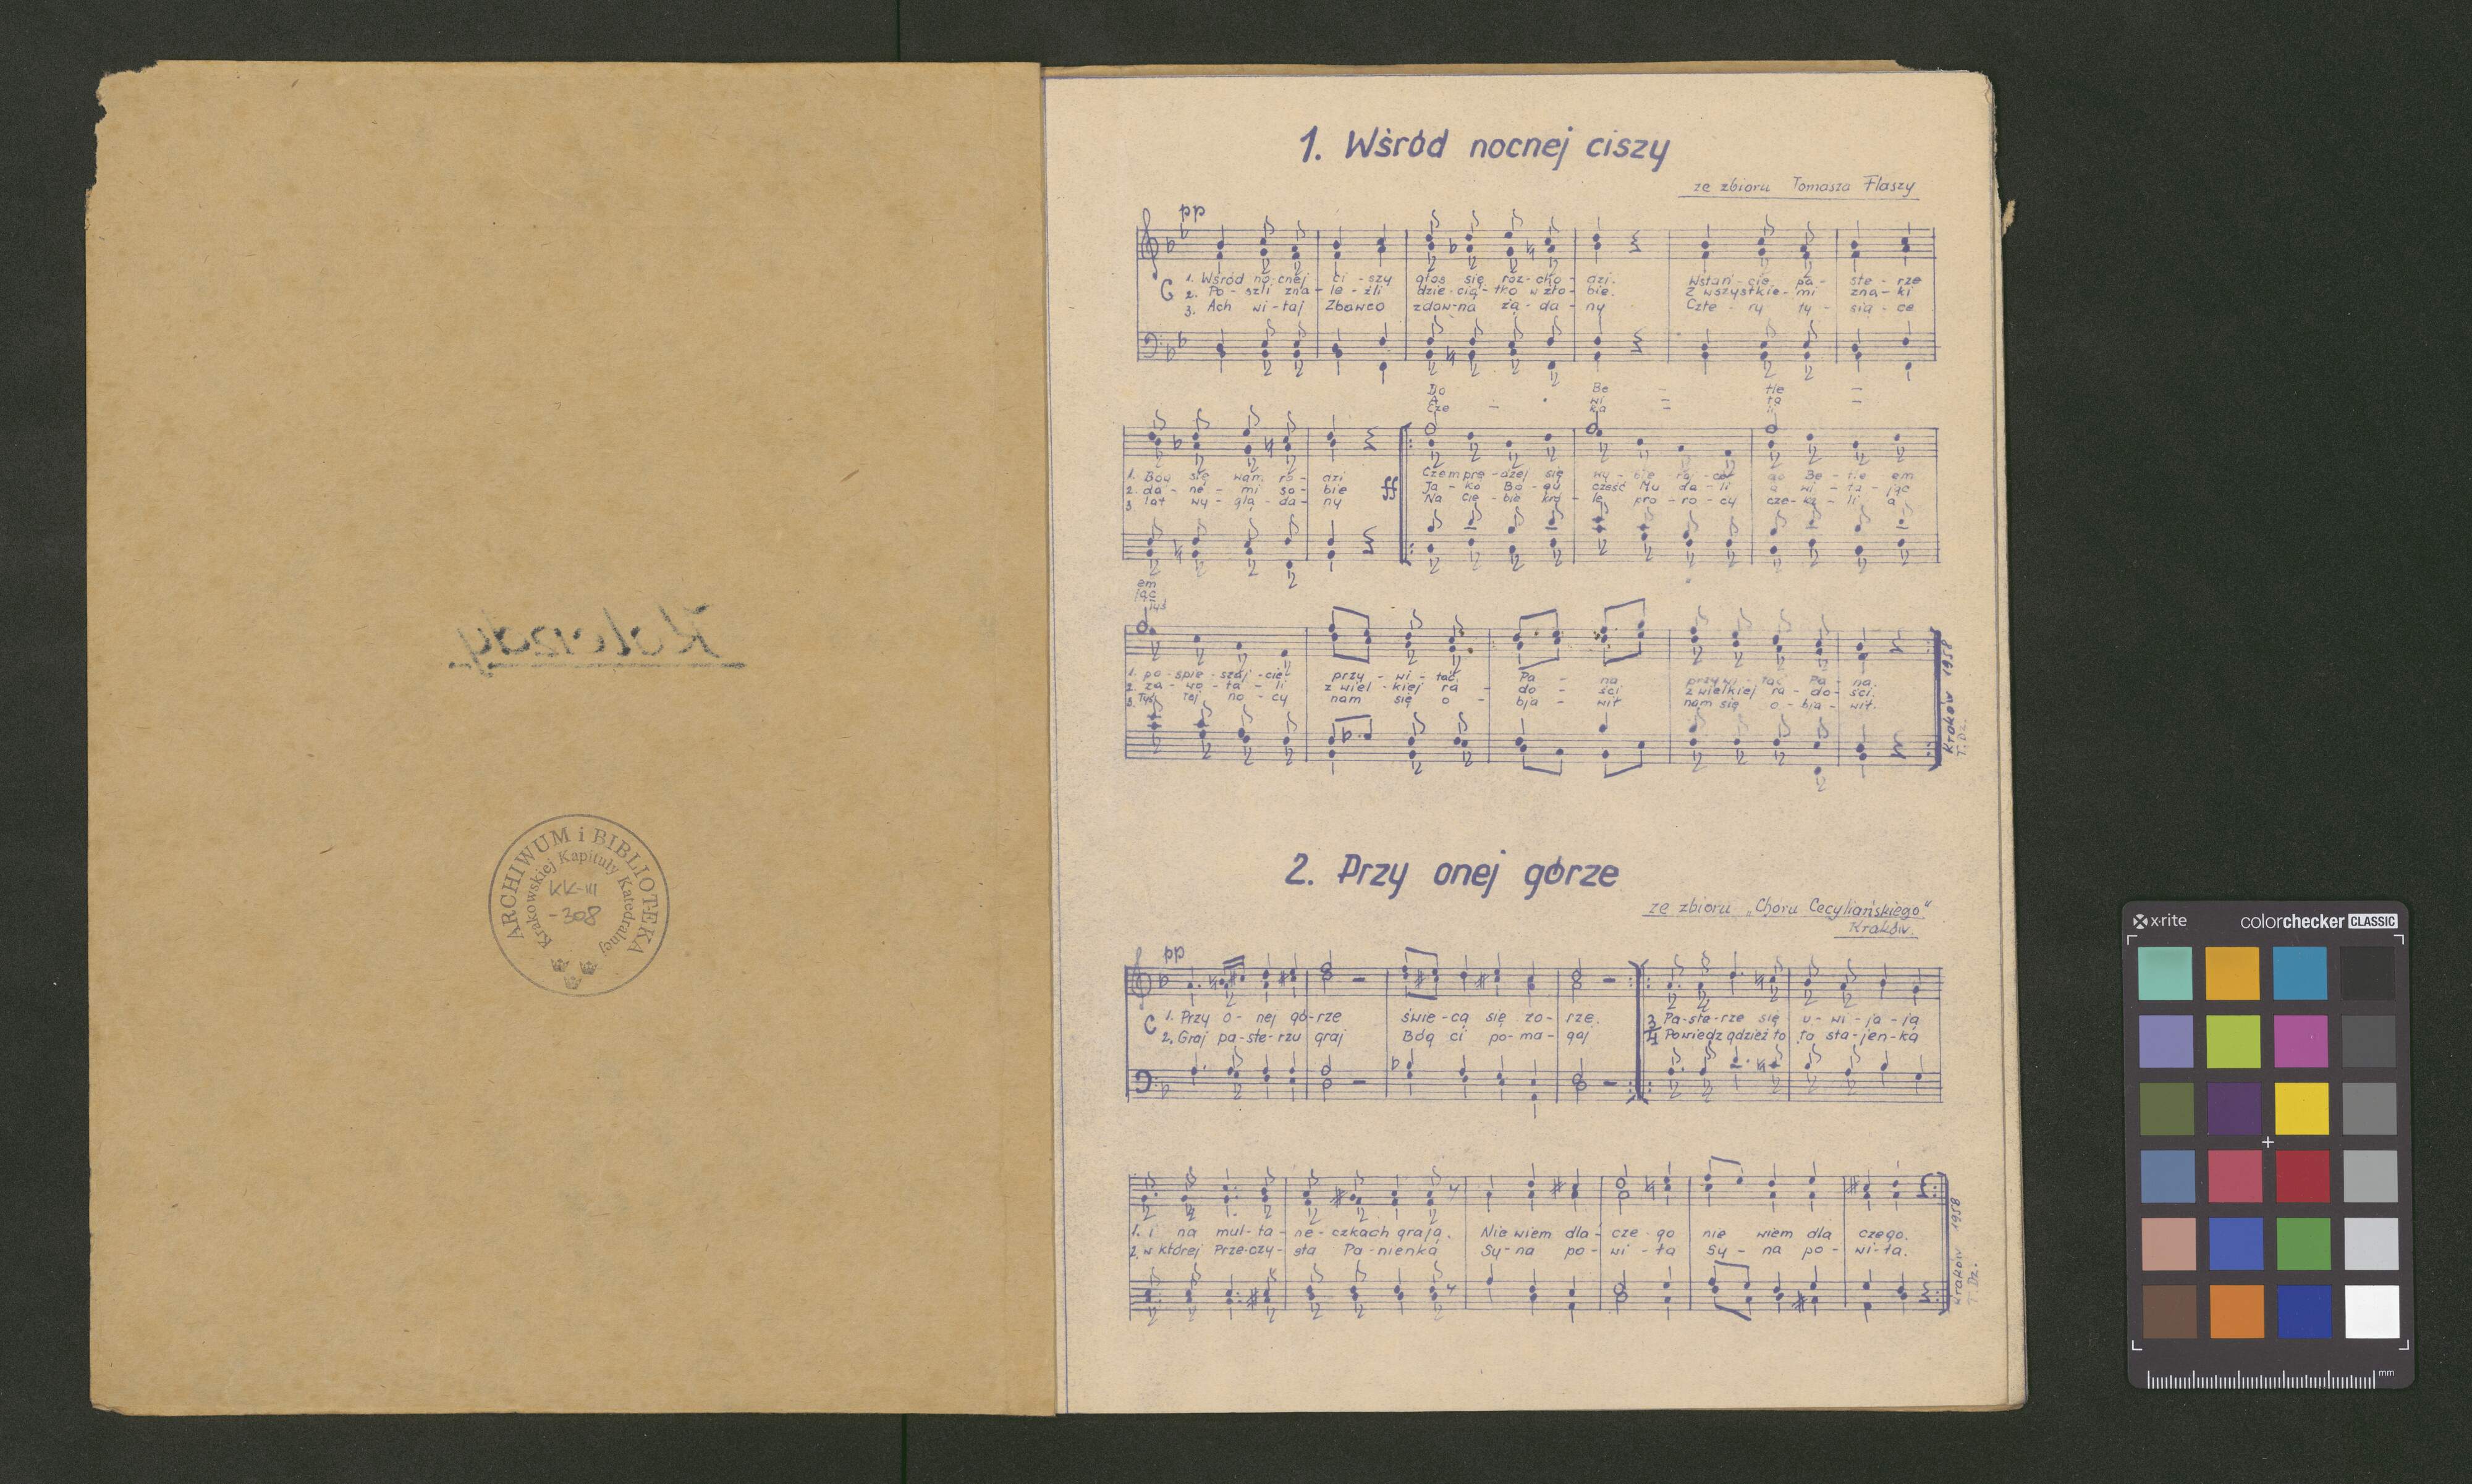 Kolendy
ARCHIWUM i BIBLIOTEKA
Krakowskiej Kapituły Katedralnej
KK-III
-308
1. Wśród nocnej ciszy
ze zbioru Tomasza Flaszy
pp
1. Wśród no-cnej ci-szy głos się roz-cho-dzi. Wstań-cie pa-ste-rze
C 2. Po-szli zna-le-źli dzie-cią-tko w żło-bie. Z wszystkie-mi zna-ki
3. Ach wi-taj Zbawco zdaw-na żą-da-ny Czte-ry ty-sią-ce
Do Be tle
A wi ta
Cze - ka li
1. Bóg się wam ro-dzi Czem prę-dzej się wy-bie-raj-cie do Be-tle em
2. da-ne-mi so-bie ff Ja-ko Bo-gu cześć Mu da-li a wi-ta-jąc
3. lat wy-glą-da-ny Na cie-bie kró-le pro-ro-cy cze-ka-li a
em
jąc
Tyś
1. po-spie-szaj-cie przy-wi-tać Pa-na przywi-tać Pa-na.
2. za-wo-ła-li z wiel-kiej ra-do-ści z wielkiej ra-do-ści.
3. Tyś tej no-cy nam się o-bja-wił nam się o-bja-wił.
Kraków 1958
T. Dz.
2. Przy onej górze
ze zbioru „Choru Cecyliańskiego"
Kraków.
pp
C 1. Przy o-nej gó-rze świe-cą się zo-rze. 3/4 Pa-ste-rze się u-wi-ja-ją
2. Graj pa-ste-rzu graj Bóg ci po-ma-gaj Powiedz gdzież to ta sta-jen-ka
1. i na mul-ta-ne-czkach grają. Nie wiem dla-cze-go nie wiem dla czego.
2. w której Prze-czy-sta Pa-nienka Sy-na po-wi-ła Sy-na po-wi-ła.
Kraków 1958
T. Dz.
x-rite
colorchecker CLASSIC
mm